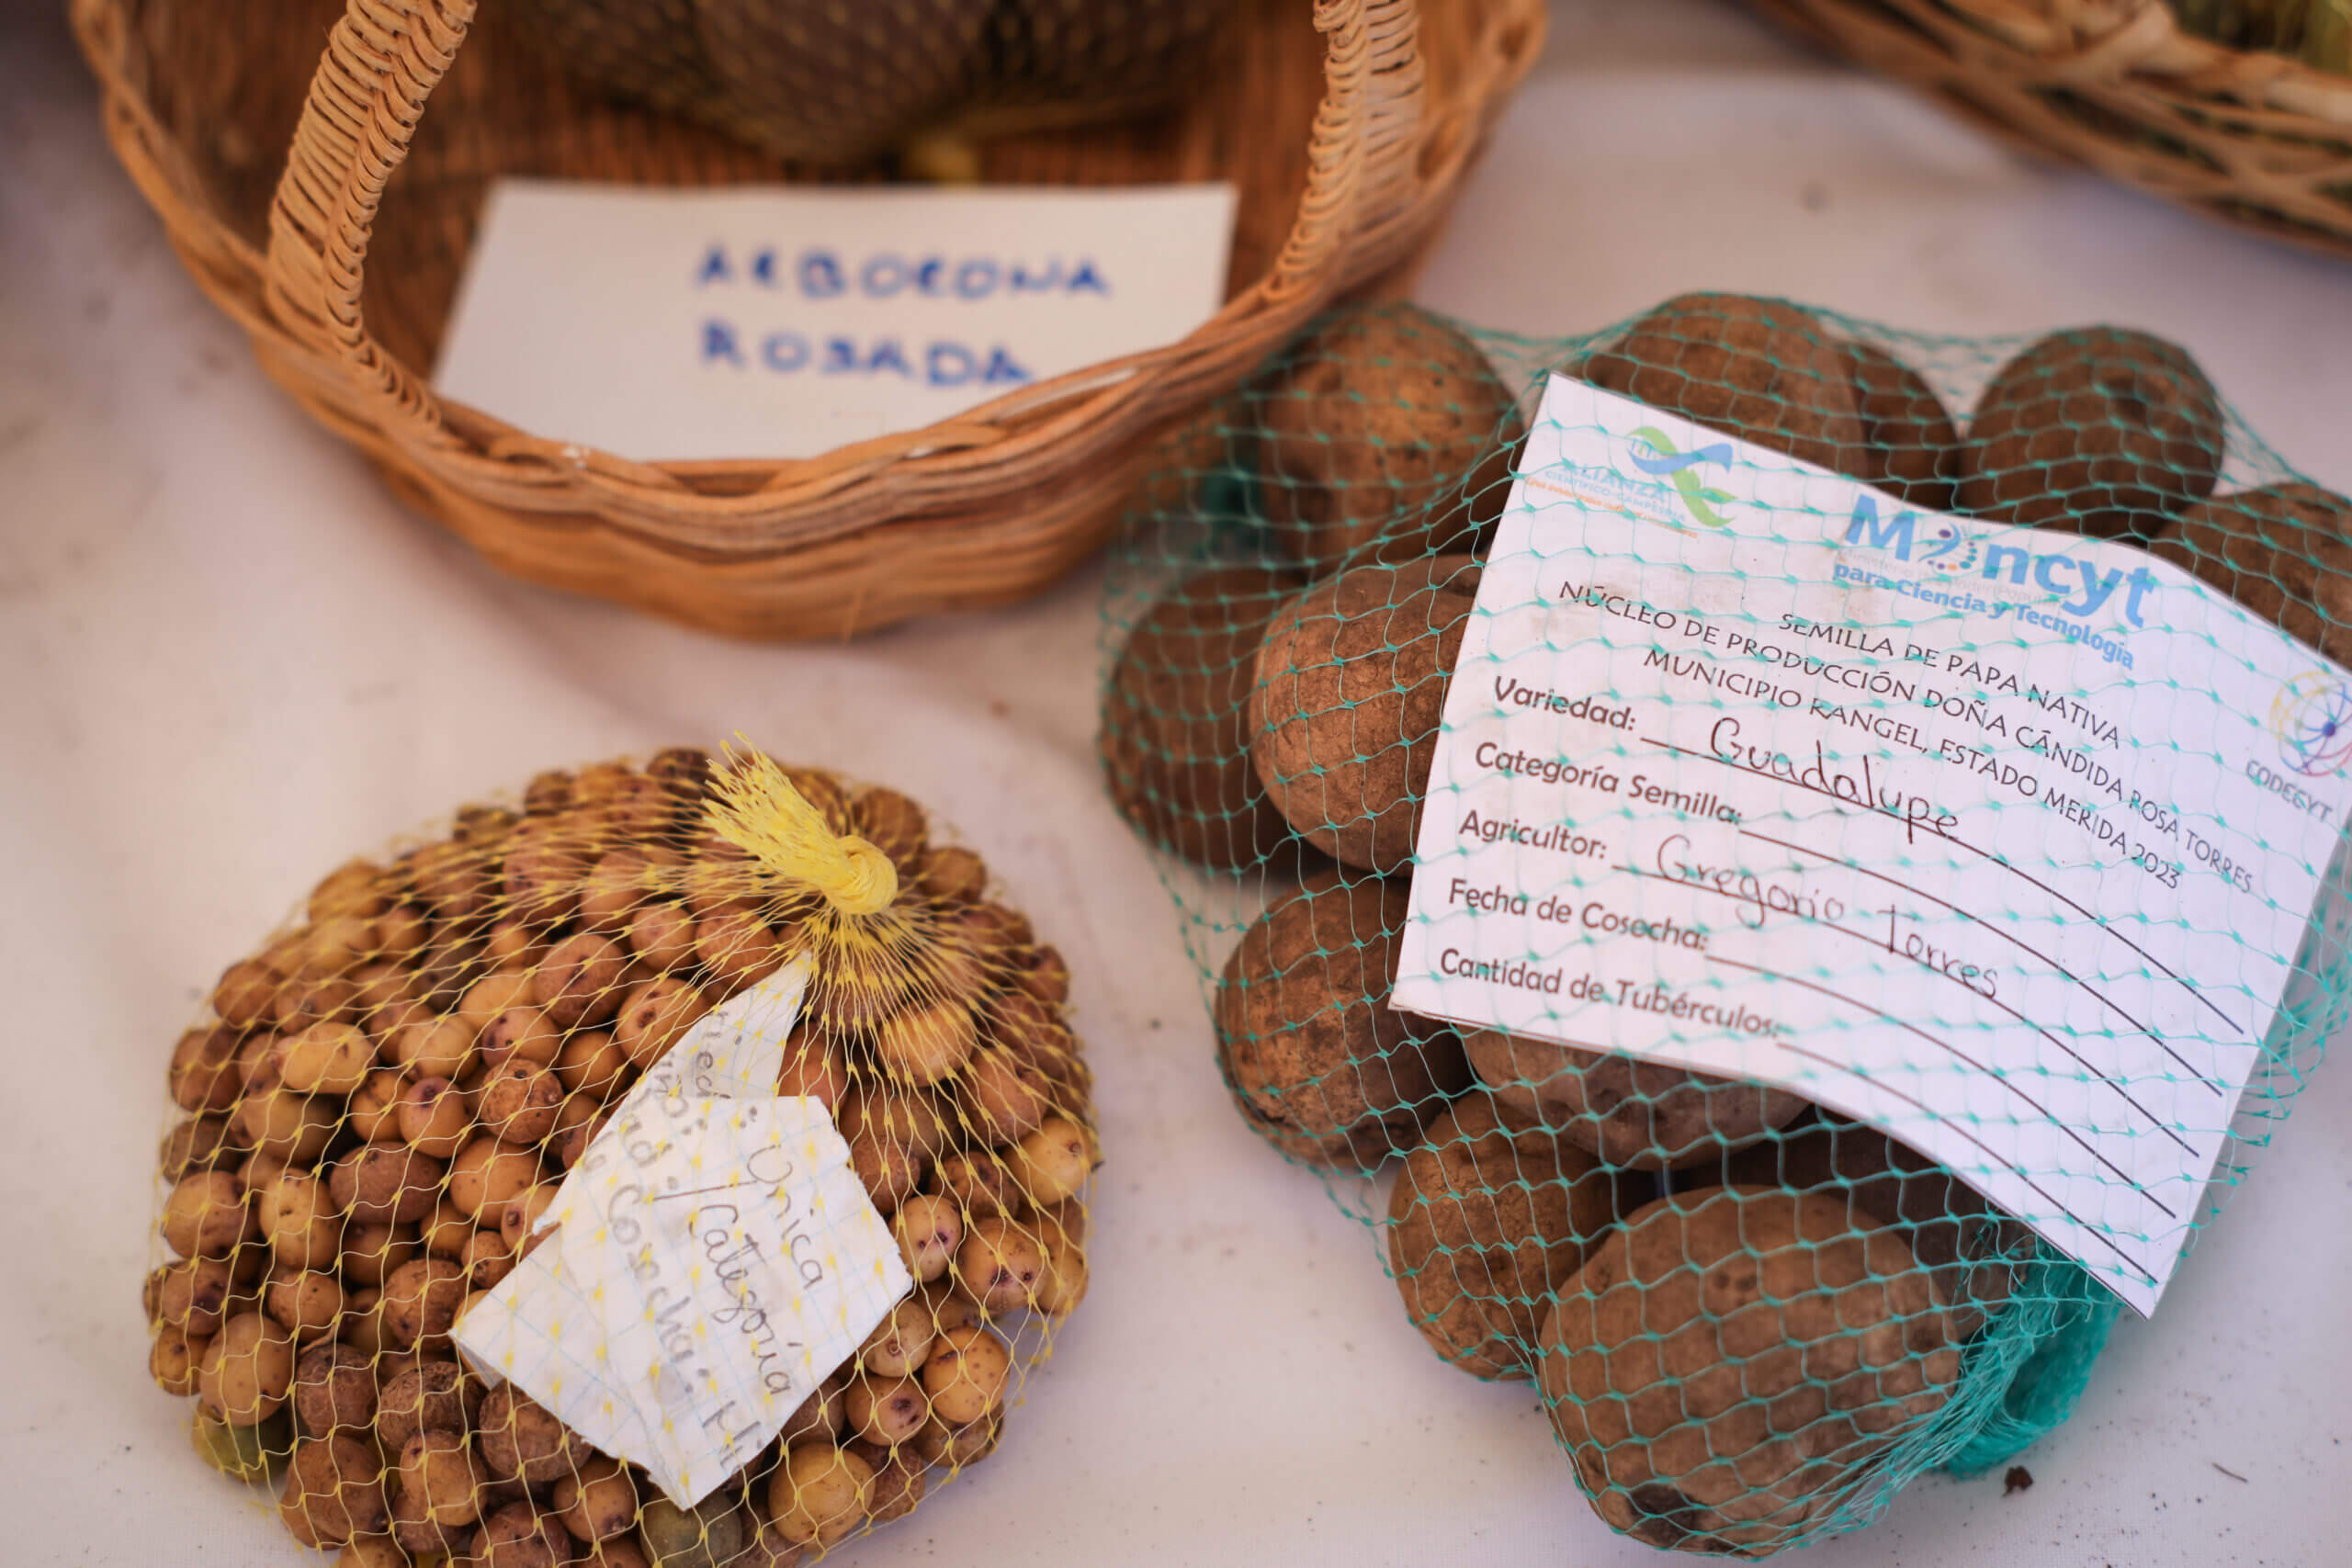 ARBORONA
ROSADA
ALIANZA
CIENTÍFICO-CAMPESINA
Mincyt
para Ciencia y Tecnología
SEMILLA DE PAPA NATIVA
NÚCLEO DE PRODUCCIÓN DOÑA CÁNDIDA ROSA TORRES
MUNICIPIO RANGEL, ESTADO MERIDA 2023
CODECYT
Variedad: Guadalupe
Categoría Semilla:
Agricultor: Gregorio Torres
Fecha de Cosecha:
Cantidad de Tubérculos:
Única
/Categoría
Cosecha: